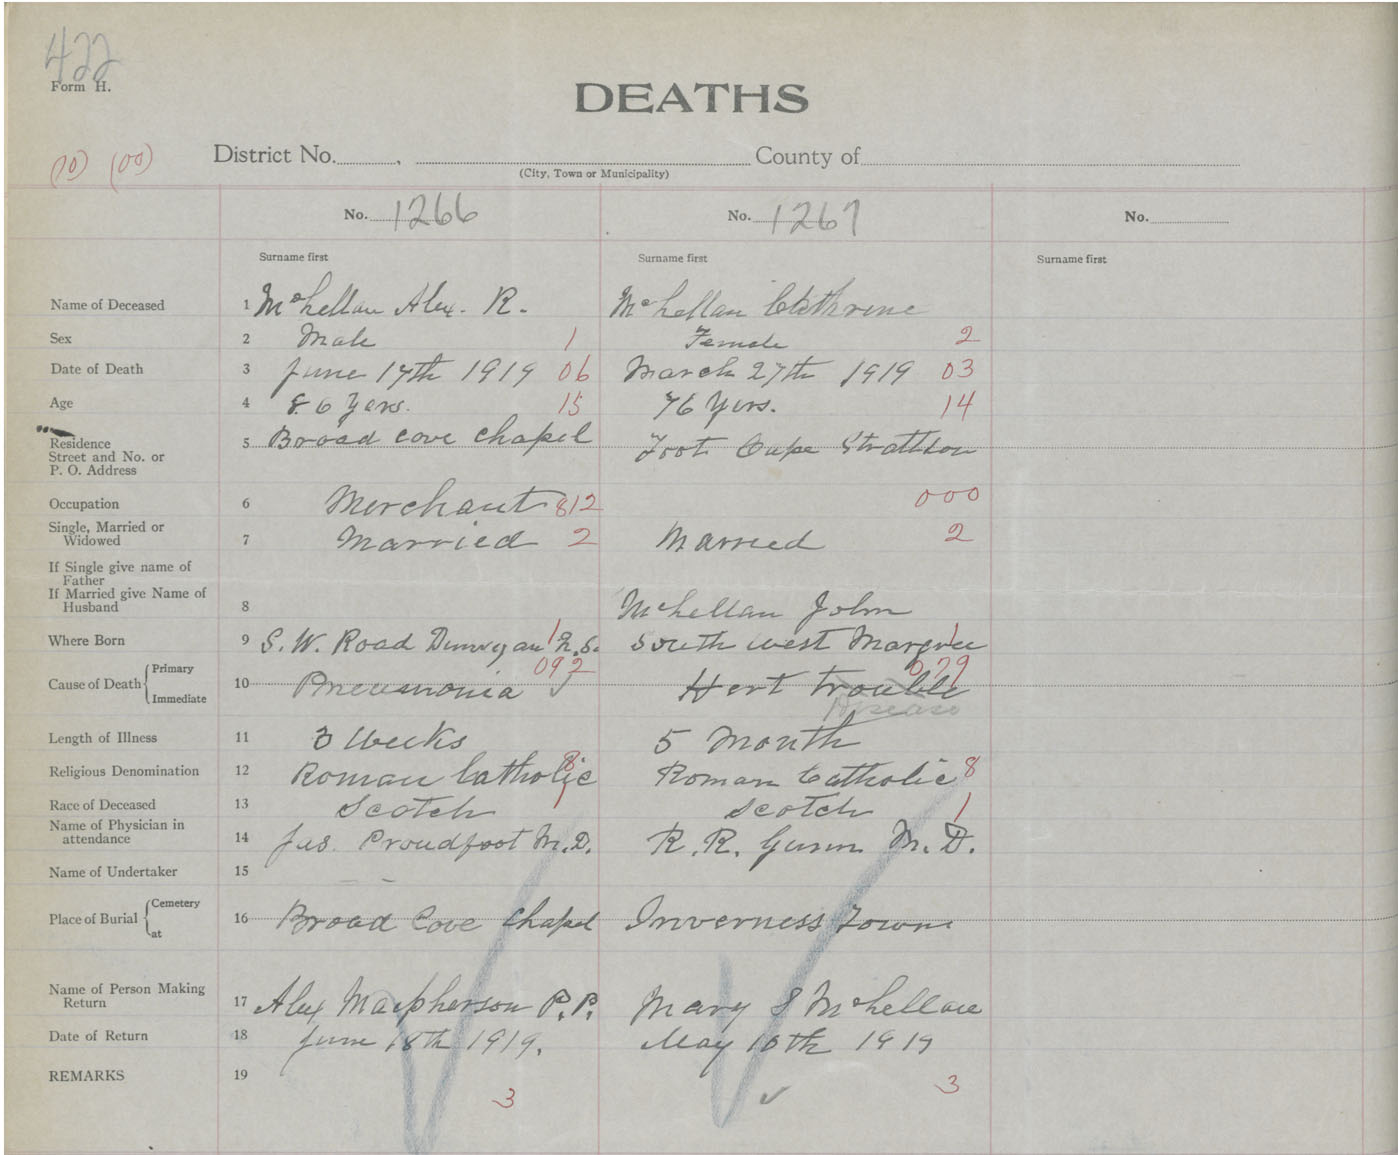 422
Form H.
DEATHS
(10) (00)
District No. , County of
(City, Town or Municipality)
No. 1266 No. 1267 No.
Surname first Surname first Surname first
Name of Deceased 1 McLellan Alex. R. McLellan Cathrine
Sex 2 Male 1 Female 2
Date of Death 3 June 17th 1919 06 March 27th 1919 03
Age 4 86 Yers. 15 76 Yers. 14
Residence 5 Broad cove chapel Foot Cape Strathlorn
Street and No. or
P. O. Address
Occupation 6 Merchant 812 000
Single, Married or
Widowed 7 Married 2 Married 2
If Single give name of
Father
If Married give Name of
Husband 8 McLellan John
Where Born 9 S. W. Road N.S. 1 South west Margree 1
Cause of Death Primary 092 079
10 Pneumonia Hert trouble
Immediate Disease
Length of Illness 11 3 Weeks 5 Month
Religious Denomination 12 Roman Catholic 8 Roman Catholic 8
Race of Deceased 13 Scotch 1 Scotch 1
Name of Physician in
attendance 14 Jas. Proudfoot M.D. R. R. Gunn M. D.
Name of Undertaker 15
Place of Burial Cemetery
16 Broad Cove Chapel Inverness Town
at
Name of Person Making
Return 17 Alex MacPherson P.P. Mary S McLellan
Date of Return 18 June 18th 1919. May 10th 1919
REMARKS 19
3 3